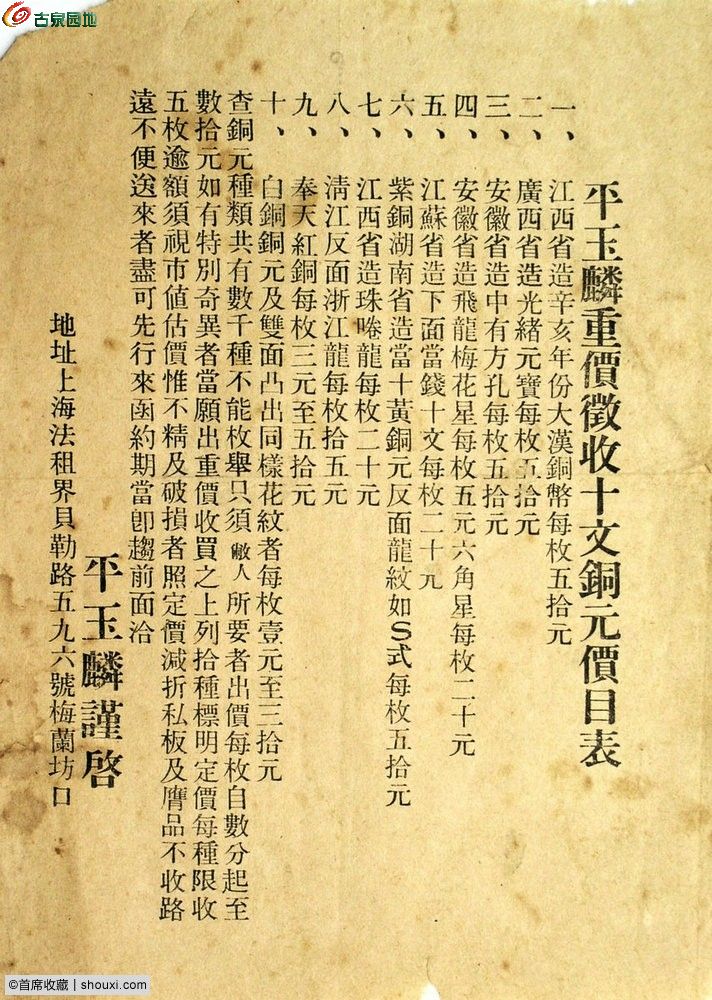 古泉园地
平玉麟重價徵收十文銅元價目表
一、江西省造辛亥年份大漢銅幣每枚五拾元
二、廣西省造光緒元寶每枚五拾元
三、安徽省造中有方孔每枚五拾元
四、安徽省造飛龍梅花星每枚五元六角星每枚二十元
五、江蘇省造下面當錢十文每枚二十元
六、紫銅湖南省造當十黃銅元反面龍紋如S式每枚五拾元
七、江西省造珠唫龍每枚二十元
八、淸江反面浙江龍每枚拾五元
九、奉天紅銅每枚三元至五拾元
十、白銅銅元及雙面凸出同樣花紋者每枚壹元至三拾元
查銅元種類共有數千種不能枚舉只須敝人所要者出價每枚自數分起至
數拾元如有特別奇異者當願出重價收買之上列拾種標明定價每種限收
五枚逾額須視市値估價惟不精及破損者照定價減折私板及贋品不收路
遠不便送來者盡可先行來函約期當卽趨前面洽
平玉麟謹啓
地址上海法租界貝勒路五九六號梅蘭坊口
@首席收藏 | shouxi.com